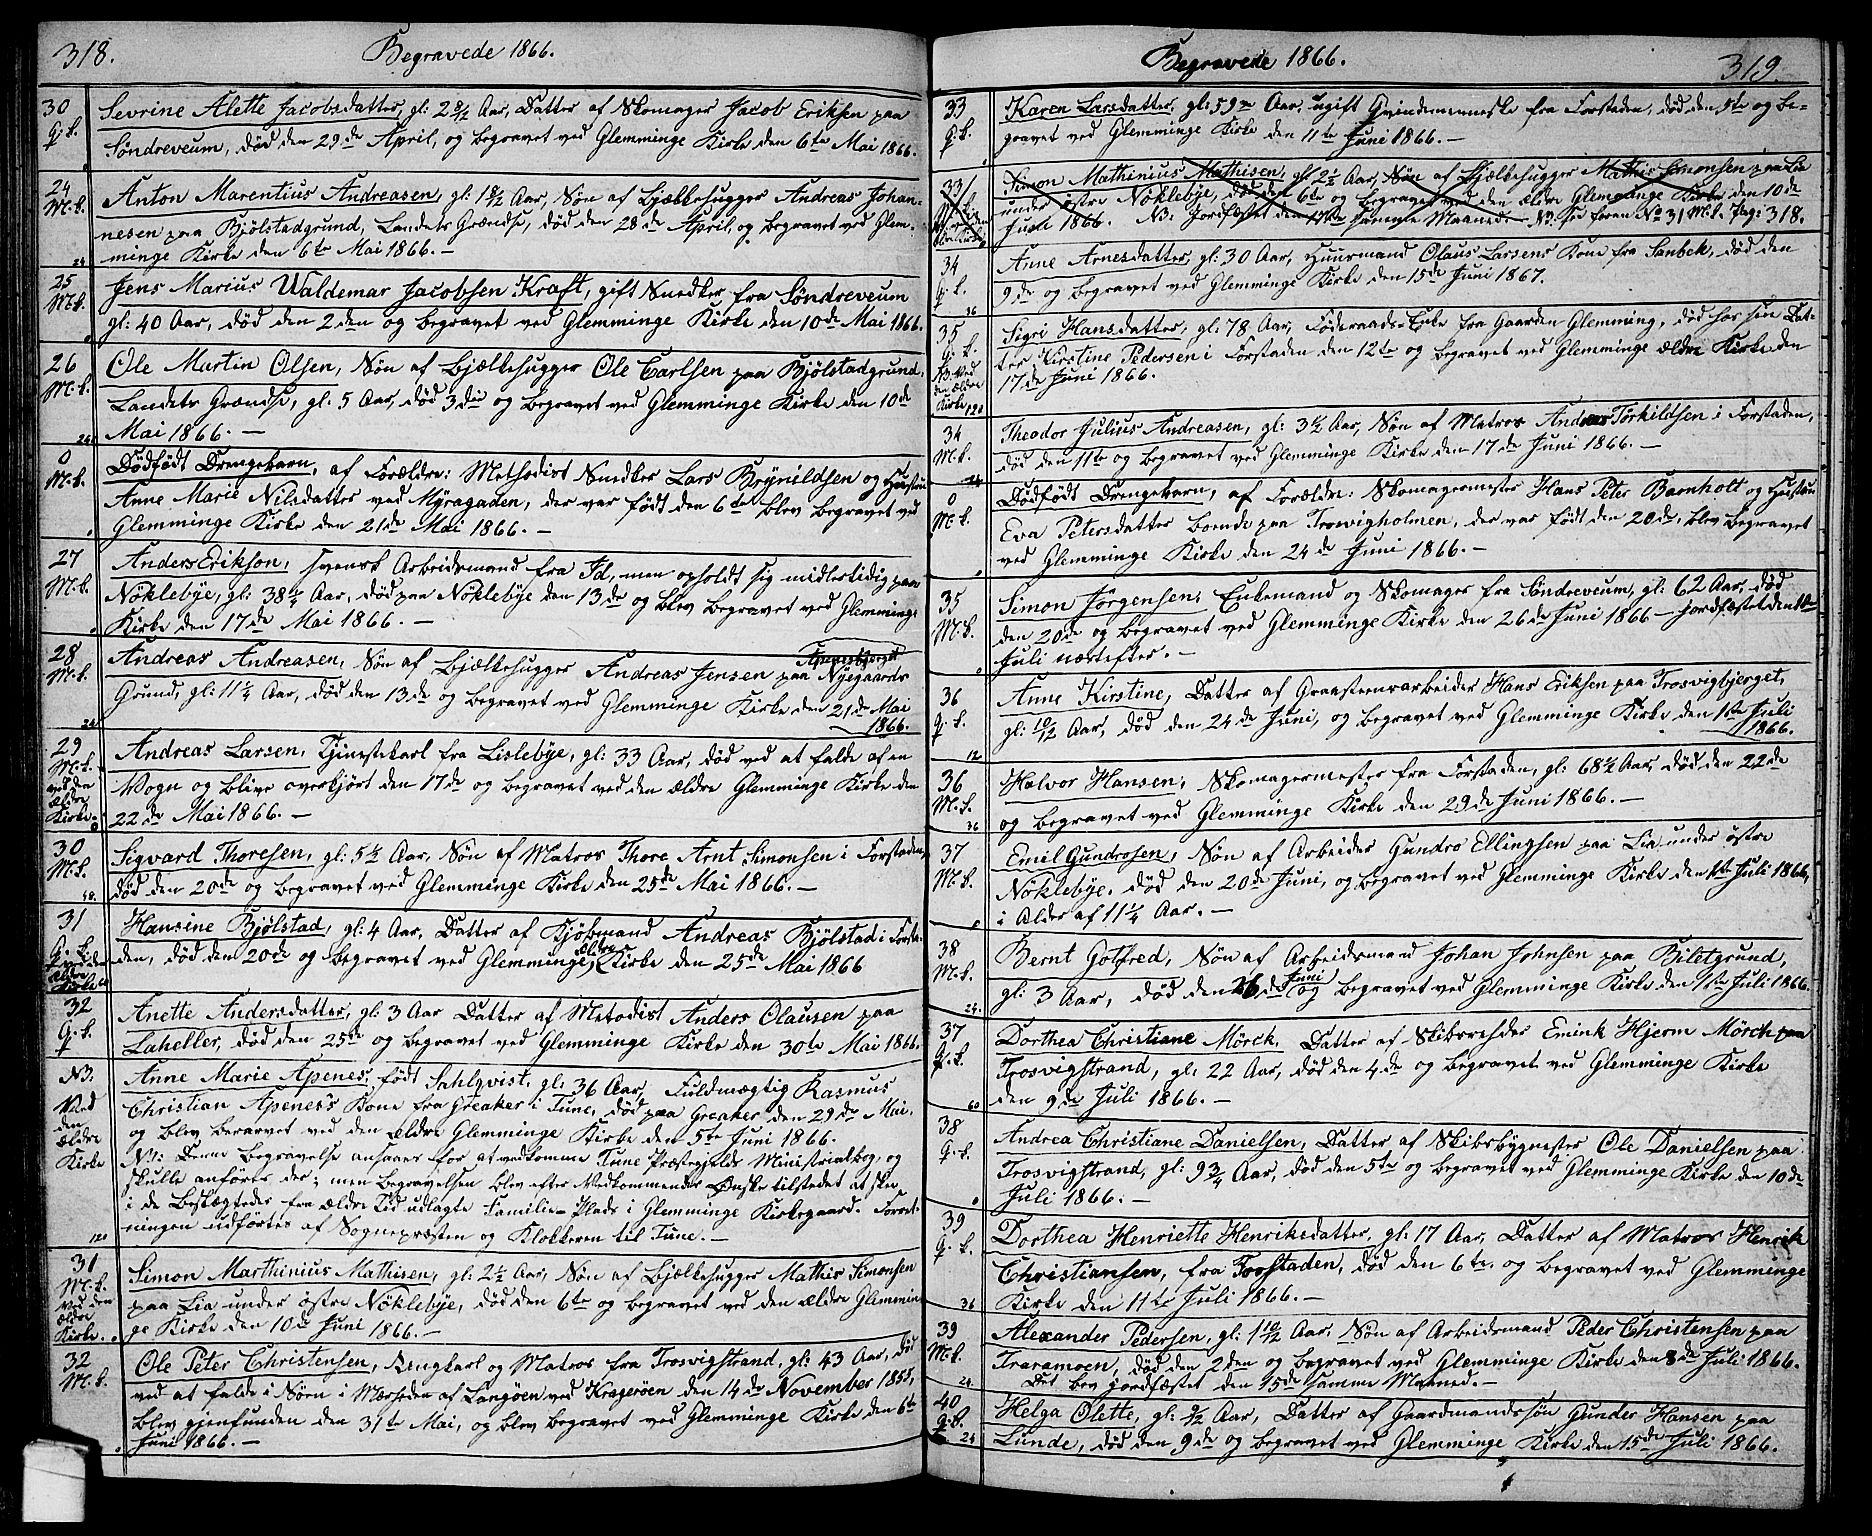 318.
Begravede 1866.
30
Q. L.
Sevrine Alette Jacobsdatter, gl: 2 8/12 Aar, Datter af Skomager Jacob Eriksen paa
Søndreveum, død den 29de April, og begravet ved Glemminge Kirke den 6te Mai 1866.
24
M. L.
Anton Marentius Andreasen, gl: 1 8/12 Aar, Søn af Bjælkehugger Andreas Johan-
nesen paa Bjølstadgrund, Landets Grændse, død den 28de April, og begravet ved Glem-
24
minge Kirke den 6te Mai 1866. —
25
M. L.
Jens Marius Waldemar Jacobsen Kraft, gift Snedker fra Søndreveum
gl: 40 Aar, død den 2den og begravet ved Glemminge Kirke den 10de Mai 1866.
26
M. L.
Ole Martin Olsen, Søn af Bjælkehugger Ole Carlsen paa Bjølstadgrund,
Landets Grændse, gl: 5 Aar, død 3die og begravet ved Glemminge Kirke den 10de
24
Mai 1866. —
0
M. L.
Dødfødt Drengebarn, af Forældre: Methodist Snedker Lars Brynildsen og Hustru
Anne Marie Nilsdatter ved Myragaden, der var født den 6te blev begravet ved
Glemminge Kirke den 21de Mai 1866. —
27
M. L.
Anders Erikson, svensk Arbeidsmand fra Id, men opholdt sig midlertidig paa
Nøklebye, gl: 38 3/4 Aar, død paa Nøklebye den 13de og blev begravet ved Glemminge
Kirke den 17de Mai 1866. —
28
M. L.
Andreas Andreasen, Søn af Bjælkehugger Andreas Jensen paa Nyegaards
Grund, gl: 11 1/4 Aar, død den 13de og begravet ved Glemminge Kirke den 21de Mai
24
1866.
29
M. L.
ved den
ældre
Kirke.
Andreas Larsen, Tjenestekarl fra Lislebye, gl: 33 Aar, død ved at falde af en
Vogn og blive overkjørt den 17de og begravet ved den ældre Glemminge Kirke den
22de Mai 1866. —
30
M. L.
Sigvard Thoresen, gl: 5 1/2 Aar, Søn af Matros Thore Arnt Simonsen i Forstaden,
død den 20de og begravet ved Glemminge Kirke den 25de Mai 1866. —
31
Q. L.
ved den
ældre
Kirke
Hansine Bjølstad, gl: 4 Aar, Datter af Kjøbmand Andreas Bjølstad i Forsta-
den, død den 20de og begravet ved Glemminge ældre Kirke den 25de Mai 1866
32
Q. L.
Anette Andersdatter, gl: 3 Aar Datter af Metodist Anders Olausen paa
Laheller, død den 25de og begravet ved Glemminge Kirke den 30te Mai 1866.
NB:
Ved
den
ældre
Kirke
Anne Marie Apenes, født Sahlqvist, gl: 36 Aar, Fuldmægtig Rasmus
Christian Apenes's Kone fra Greaker i Tune, død paa Greaker den 29de Mai,
og blev beravet ved den ældre Glemminge Kirke den 5te Juni 1866.
NB: Denne Begravelse ansaaes for at vedkomme Tune Præstegjelds Ministrialbog, og
skulle anføres der; men begravelsen blev efter Vedkommendes Ønske tilstedet at ske
i de Beslægtedes fra ældre Tid udlagte Familie-Plads i Glemminge Kirkegaard. Forret-
ningen udførtes af Sognepræsten og Klokkeren til Tune. —
120
31
M. L.
ved den
ældre
Kirke.
Simon Marthinius Mathisen, gl: 2 1/2 Aar, Søn af Bjælkehugger Mathis Simonsen
paa Lia under østre Nøklebye, død den 6te og begravet ved den ældre Glemmin-
ge Kirke den 10de Juni 1866. —
32
M. L.
Ole Peter Christensen, Ungkarl og Matros fra Trosvigstrand, gl: 43 Aar, død
ved at falde i Søen i Nærheden af Langøen ved Kragerøen den 14de November 1855,
blev gjenfunden den 31te Mai, og blev begravet ved Glemminge Kirke den 6te
Juni 1866. —
Begravede 1866.
319
33
Q. L.
Karen Larsdatter, gl: 59 Aar, ugift Qvindemenneske fra Forstaden, død den 5te og be-
gravet ved Glemminge Kirke den 11te Juni 1866. —
33
Simon Mathinius Mathisen, gl: 2 1/2 Aar, Søn af Bjælkehugger Mathis Simonsen paa Lia
under østre Nøklebye, død den 6te og begravet ved den ældre Glemminge Kirke den 10de
Juni 1866. NB: Jordfæstet den 17te samme Maaned. NB. Se foran No 31 M. L. Pag: 318.
34
Q. L.
Anne Arnesdatter, gl: 30 Aar, Huusmand Olaus Larsens Kone fra Sanbek, død den
9de og begravet ved Glemminge Kirke den 15de Juni 1867.
36
35
Q. L.
NB. Ved
den ældre
Kirke 120
Sigri Hansdatter, gl: 78 Aar, Føderaads-Enke fra Gaarden Glemming, død hos sin Dat-
ter Kirstine Pedersen i Forstaden den 12te og begravet ved Glemminge ældre Kirke den
17de Juni 1866.
34
M. L.
Theodor Julius Andreasen, gl: 3 1/2 Aar, Søn af Matros Andreas Torkildsen i Forstaden,
død den 11te og begravet ved Glemminge Kirke den 17de Juni 1866. —
24
0
M. L.
Dødfødt Drengebarn, af Forældre: Skomagermester Hans Peter Barnholt og Hustru
Eva Petersdatter boende paa Trosvigholmen, der var født den 20de, blev begravet
ved Glemminge Kirke den 24de Juni 1866. —
35
M. L.
Simon Jørgensen, Enkemand og Skomager fra Søndreveum, gl: 62 Aar, død
den 20de og begravet ved Glemminge Kirke den 26de Juni 1866 — Jordfæstet den
Juli næstefter. —
36
Q. L.
Anne Kirstine, Datter af Graasteensarbeider Hans Eriksen paa Trosvigbjerget,
gl: 10/12 Aar, død den 24de Juni, og begravet ved Glemminge Kirke den 1ste Juli
12
1866.
36
M. L.
Halvor Hansen, Skomagermester fra Forstaden, gl: 68 1/2 Aar, død den 22de
og begravet ved Glemminge Kirke den 29de Juni 1866. —
36
37
M. L.
Emil Gundrosen, Søn af Arbeider Gundro Ellingsen paa Lia under østre
Nøklebye, død den 20de Juni, og begravet ved Glemminge Kirke den 1ste Juli 1866,
i Alder af 11 1/4 Aar. —
38
M. L.
Bernt Gotfred, Søn af Arbeidsmand Johan Johnsen paa Biletgrund,
gl: 3 Aar, død den 26de Juni og begravet ved Glemminge Kirke den 1ste Juli 1866.
24.
37
Q. L.
Dorthea Christiane Mørck, Datter af Skibsreder Enink Hjerm Mørch paa
Trosvigstrand, gl: 22 Aar, død den 4de og begravet ved Glemminge Kirke
60
den 9de Juli 1866. —
38
Q. L.
Andrea Christiane Danielsen, Datter af Skibsbygmester Ole Danielsen paa
Trosvigstrand, gl: 9 3/4 Aar, død den 5te og begravet ved Glemminge Kirke den 10de
Juli 1866. —
39
Q. L.
Dorthea Henriette Henriksdatter, gl: 17 Aar, Datter af Matros Henrik
Christiansen, fra Forstaden, død den 6te. og begravet ved Glemminge
36
Kirke den 11te Juli 1866. —
39
M. L.
Alexander Pedersen, gl: 1 10/12 Aar, Søn af Arbeidsmand Peder Christensen paa
Traramoen, død den 2den og begravet ved Glemminge Kirke den 8de Juli 1866.
24
Det blev jordfæstet den 15de samme Maaned. —
40
Q. L.
Helga Olette, gl: 9/12 Aar, Datter af Gaardmandssøn Gunder Hansen paa
24
Lunde, død den 9de og begravet ved Glemminge Kirke den 15de Juli 1866.